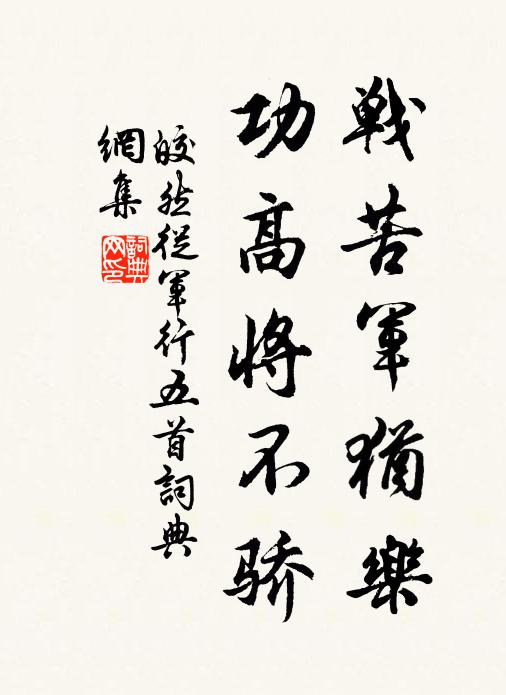 戦苦軍猶樂
功高將不骄
皎然從軍行五首詞典
網集
詞典
网印